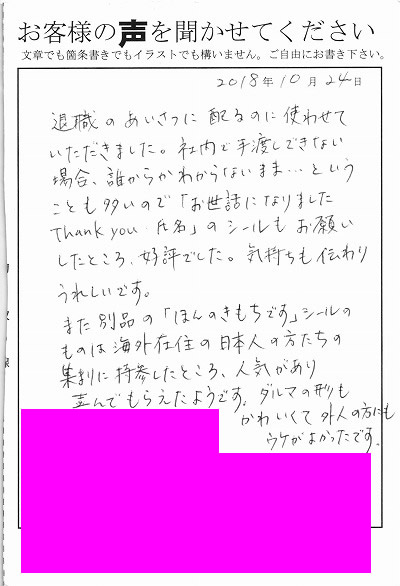 お客様の声を聞かせてください
文章でも箇条書きでもイラストでも構いません。ご自由にお書き下さい。
2018年10月24日
退職のあいさつに配るのに使わせて
いただきました。社内で手渡しできない
場合、誰からかわからないまま…という
ことも多いので「お世話になりました
Thank you 氏名」のシールもお願い
したところ、好評でした。気持ちも伝わり
うれしいです。
また別品の「ほんのきもちです」シールの
ものは海外在住の日本人の方たちの
集まりに持参したところ、人気があり
喜んでもらえたようです。ダルマの形も
かわいくて外人の方にも
ウケがよかったです。